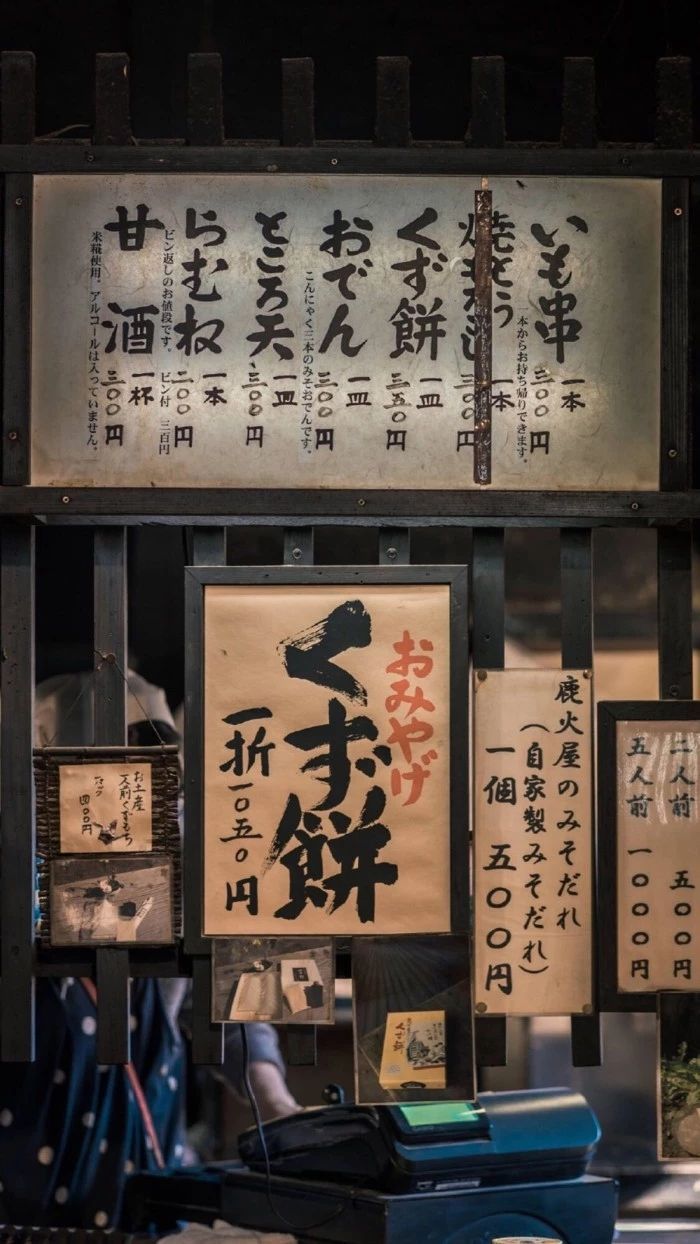 いも串 一本 三〇〇円
本からお持ち帰りできます。
焼とう 本
三〇〇円
くず餅 一皿 三五〇円
おでん 一皿 三〇〇円
こんにゃく三本のみそおでんです。
ところ天 一皿 三〇〇円
らむね 一本 二〇〇円
ビン返しのお値段です。 ビン付 三百円
甘酒 一杯 三〇〇円
米糀使用。アルコールは入っていません。
二人前 五〇〇円
五人前 一〇〇〇円
鹿火屋のみそだれ
(自家製みそだれ)
一個 五〇〇円
おみやげ
くず餅
一折一〇五〇円
お土産
人前くずもち
四〇〇円
くず餅